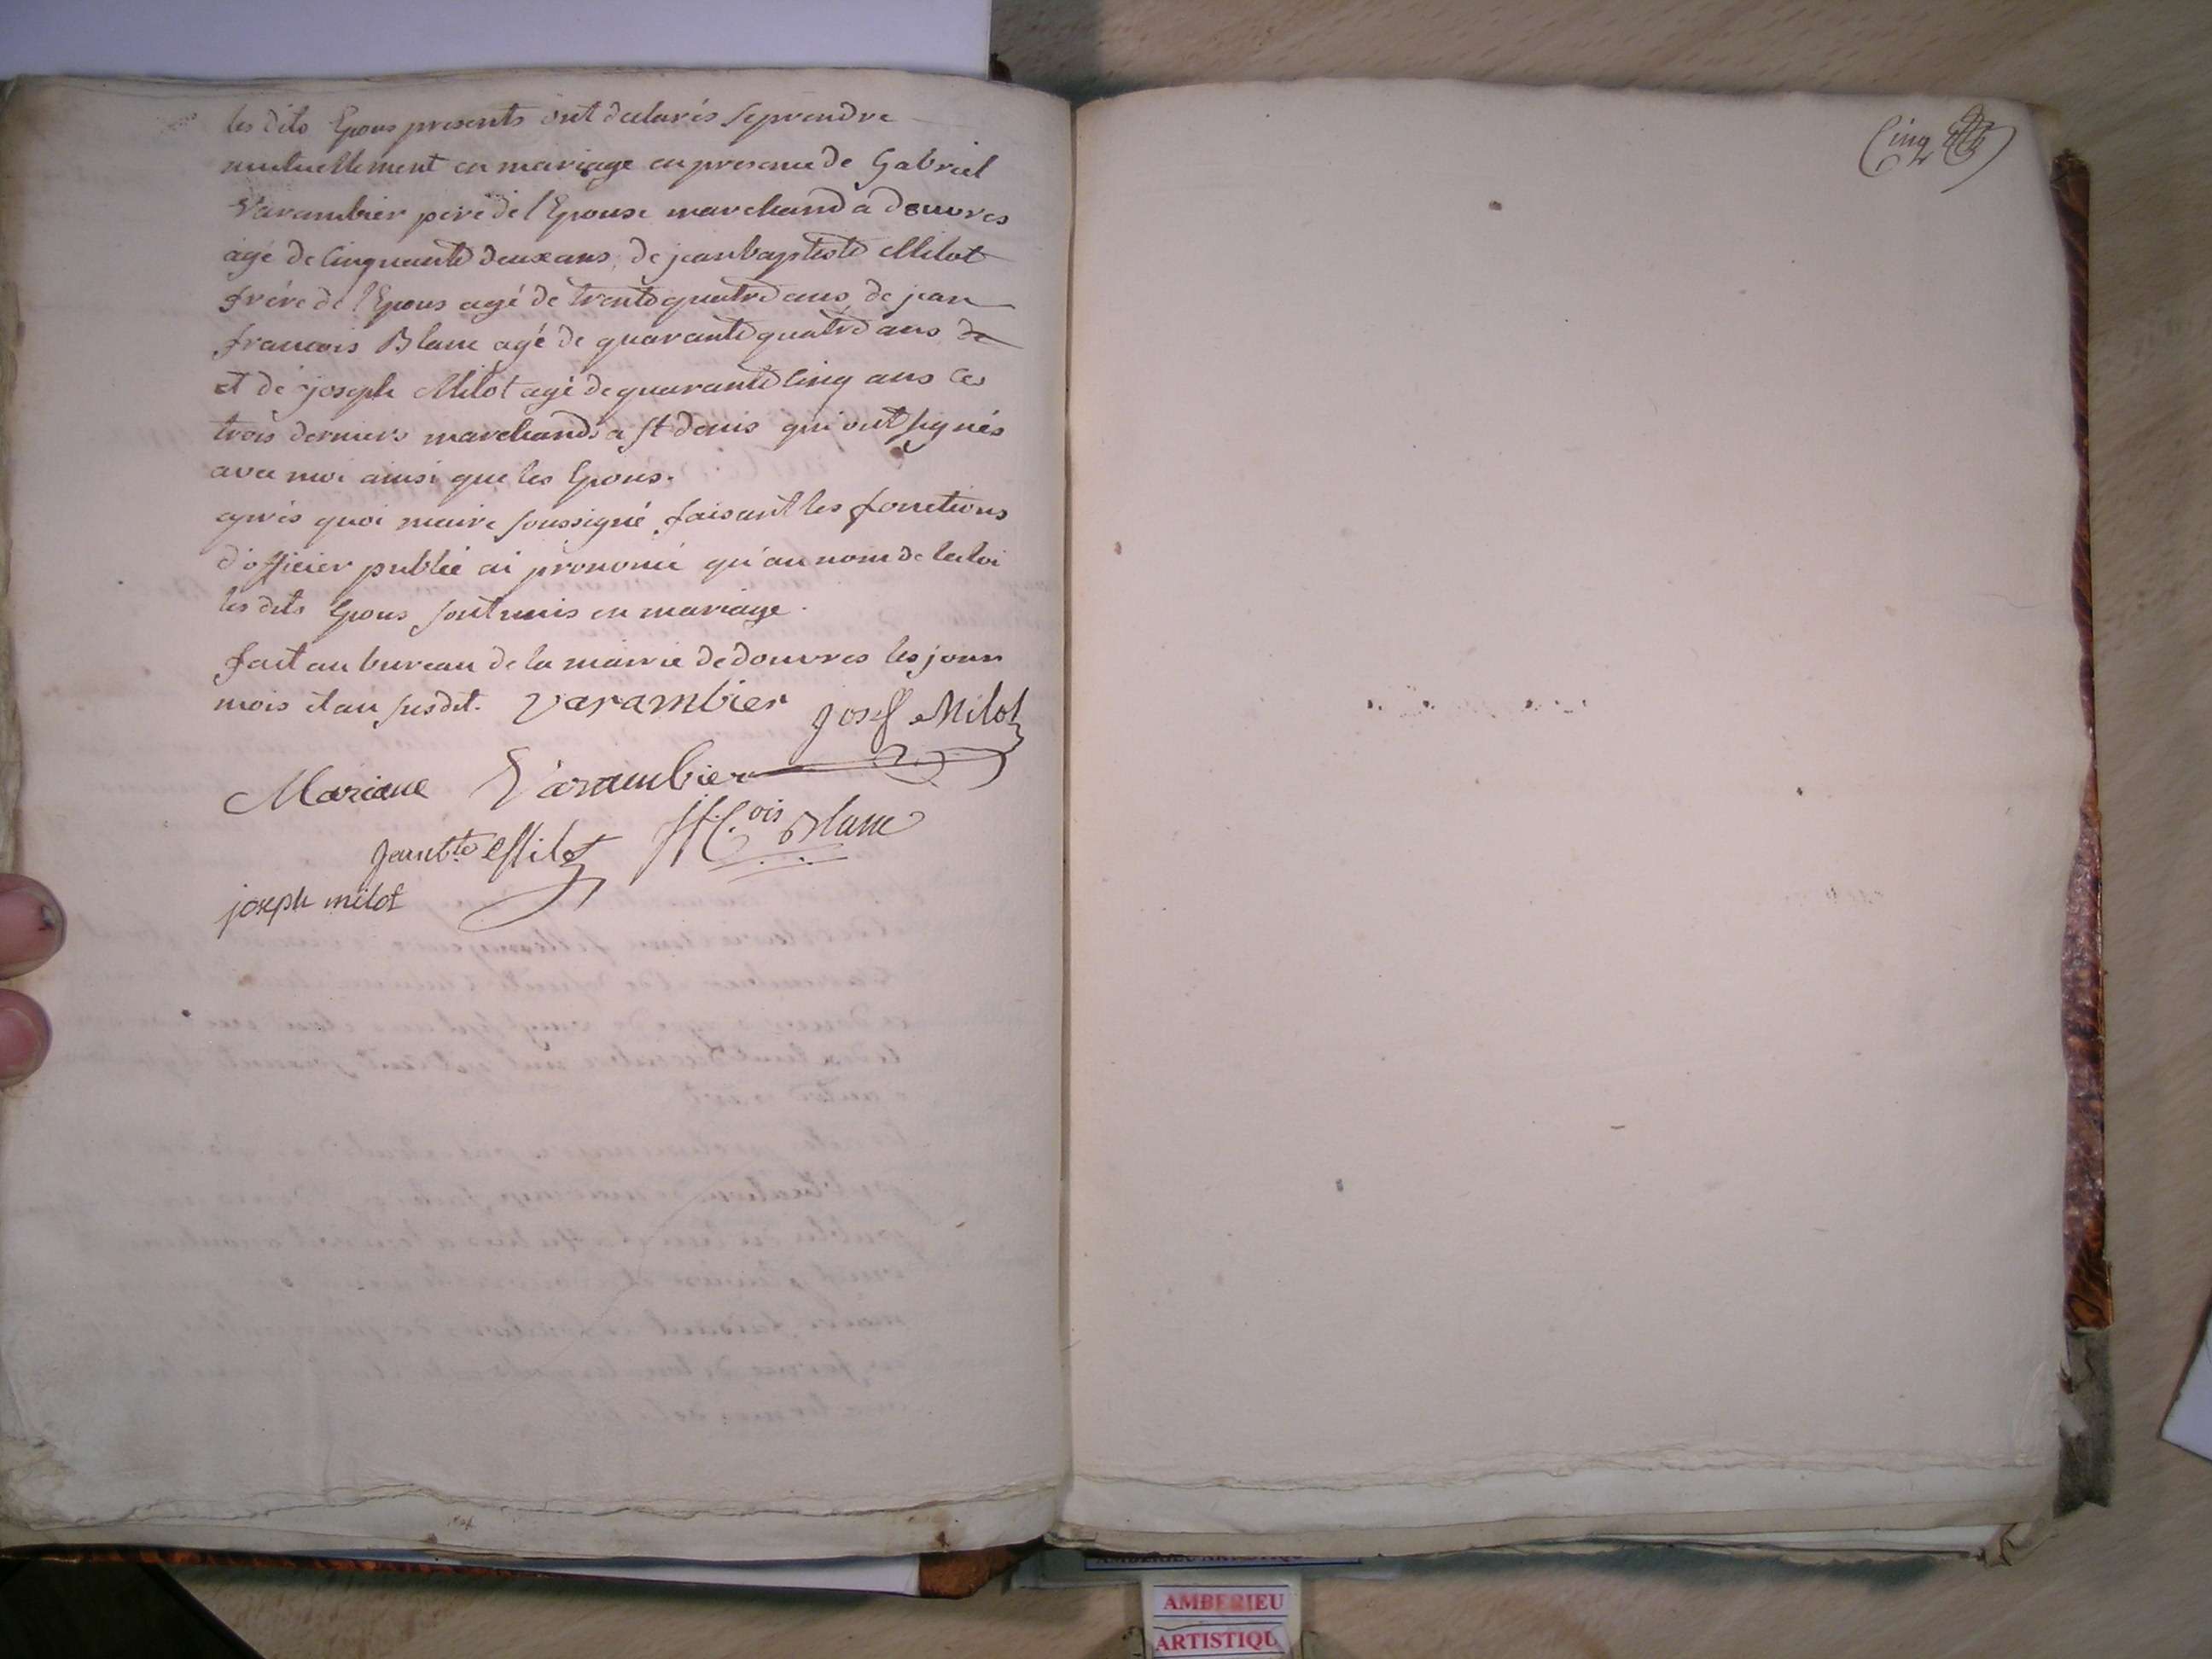 les dits Epous presents ont declarés se prendre
mutuellement en mariage en presence de Gabriel
Varambier pere de l'Epouse marchand a douvres
agé de cinquante deux ans, de jean baptiste Milot
frére de l'Epous agé de trente quatre ans, de jean
francois Blanc agé de quarante quatre ans de
et de joseph Milot agé de quarante cinq ans ces
trois derniers marchands a St denis qui ont signés
avec moi ainsi que les Epous.
aprés quoi maire soussigné faisant les fonctions
d'officier public ai prononcé qu'au nom de la loi
les dits Epous sont unis en mariage.
fait au bureau de la mairie de douvres les jour
mois et an susdit. Varambier Josef Milot
Mariane Varambier
Jean bte Milot ois Blanc
joseph milot
Cinq
AMBERIEU
ARTISTIQU